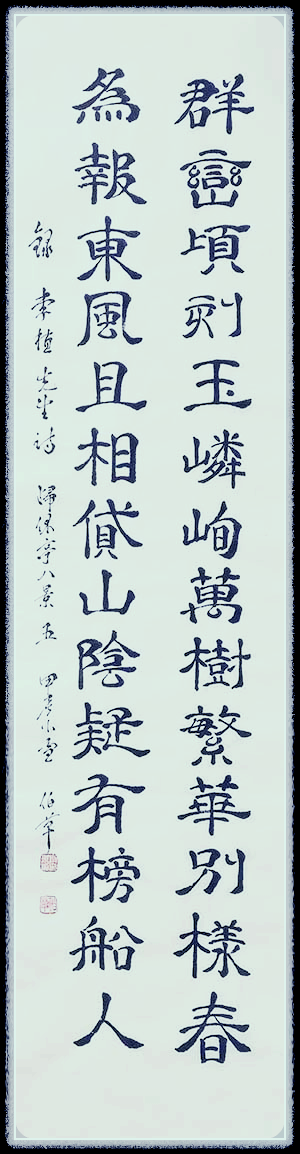 群巒頃刻玉嶙峋萬樹繁華別樣春
為報東風且相貸山陰疑有榜船人
錄 李植先生詩 歸休亭八景 五